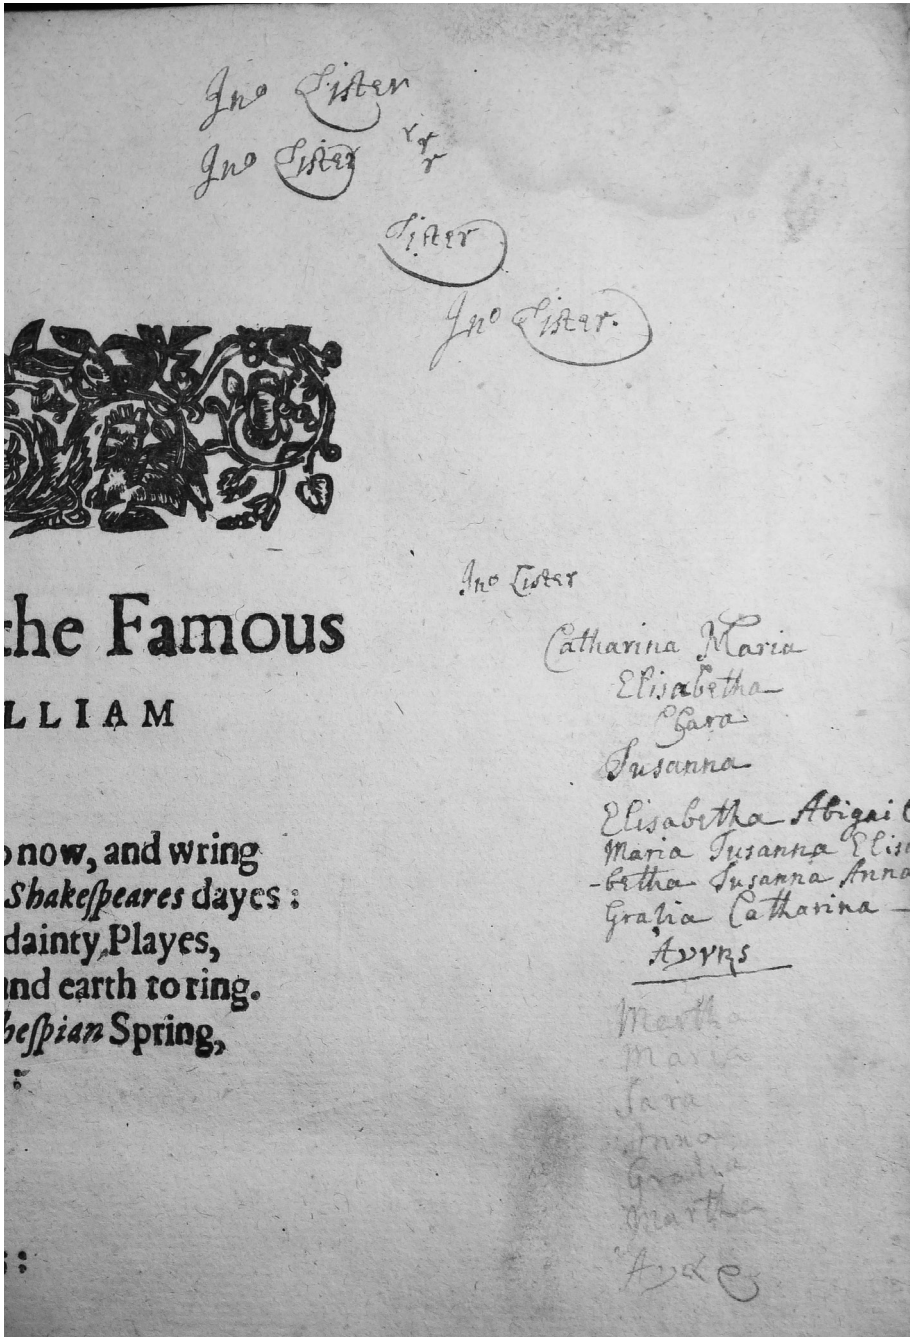 Jno Lister
Jno Lister
r r
r
Lister
Jno Lister.
the Famous
LLIAM
now, and wring
Shakeſpeares dayes :
dainty Playes,
nd earth to ring.
heſpian Spring,
:
:
Jno Lister
Catharina Maria
Elisabetha
Susanna
Elisabetha Abigail
Maria Susanna Elisa
-betha Susanna Anna
Gratia Catharina —
Martha
Maria
Sara
Anna
Gratia
Martha